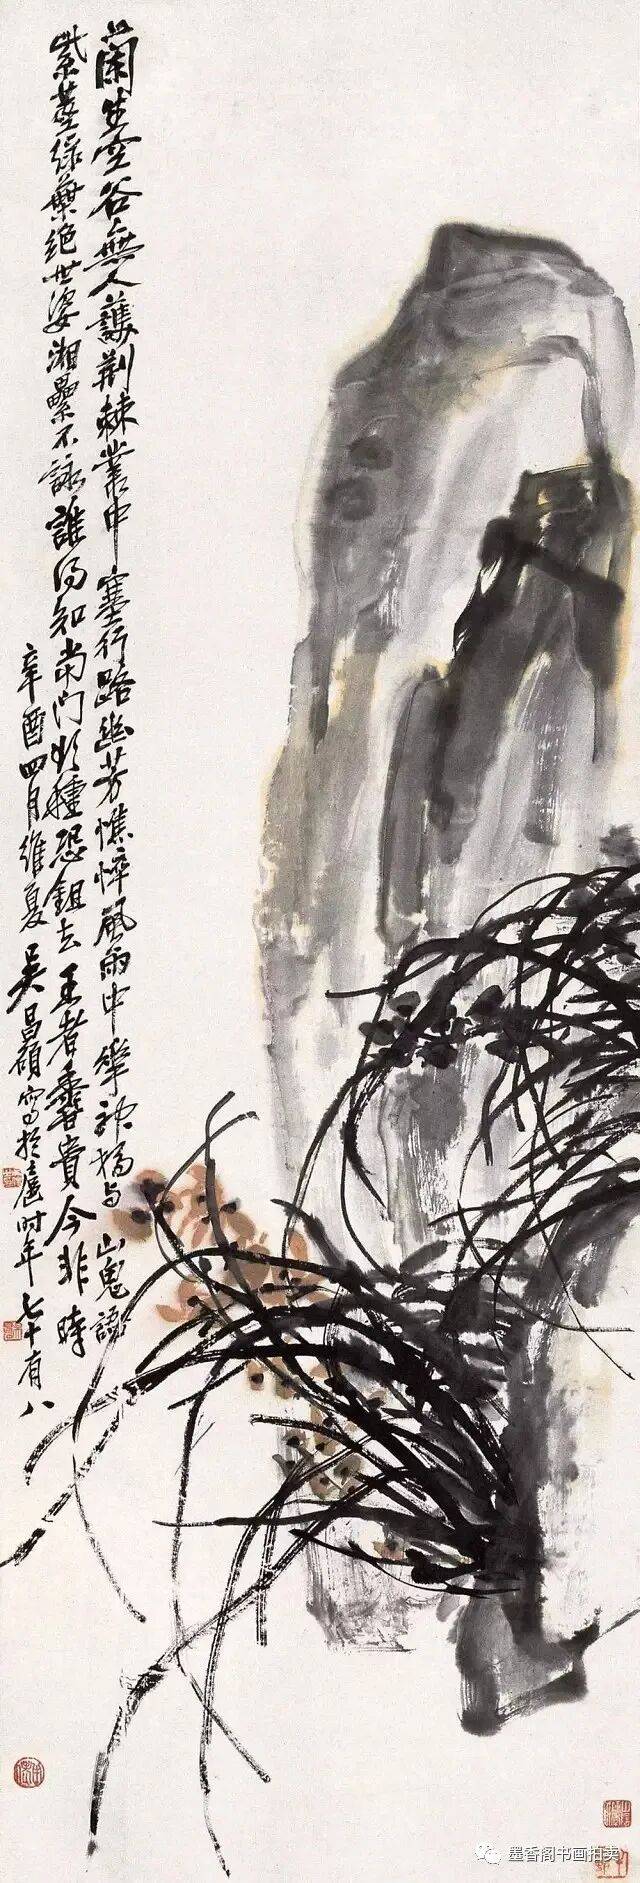 蘭生空谷無人護荆棘叢中塞行路幽芳憔悴風雨中華神獨与山鬼語
紫莖綠葉絕世姿湘纍不詠誰得知當門欲種恐鉏去王者香貴今非時
辛酉四月維夏吳昌碩寫於扈時年七十有八
墨香阁书画拍卖